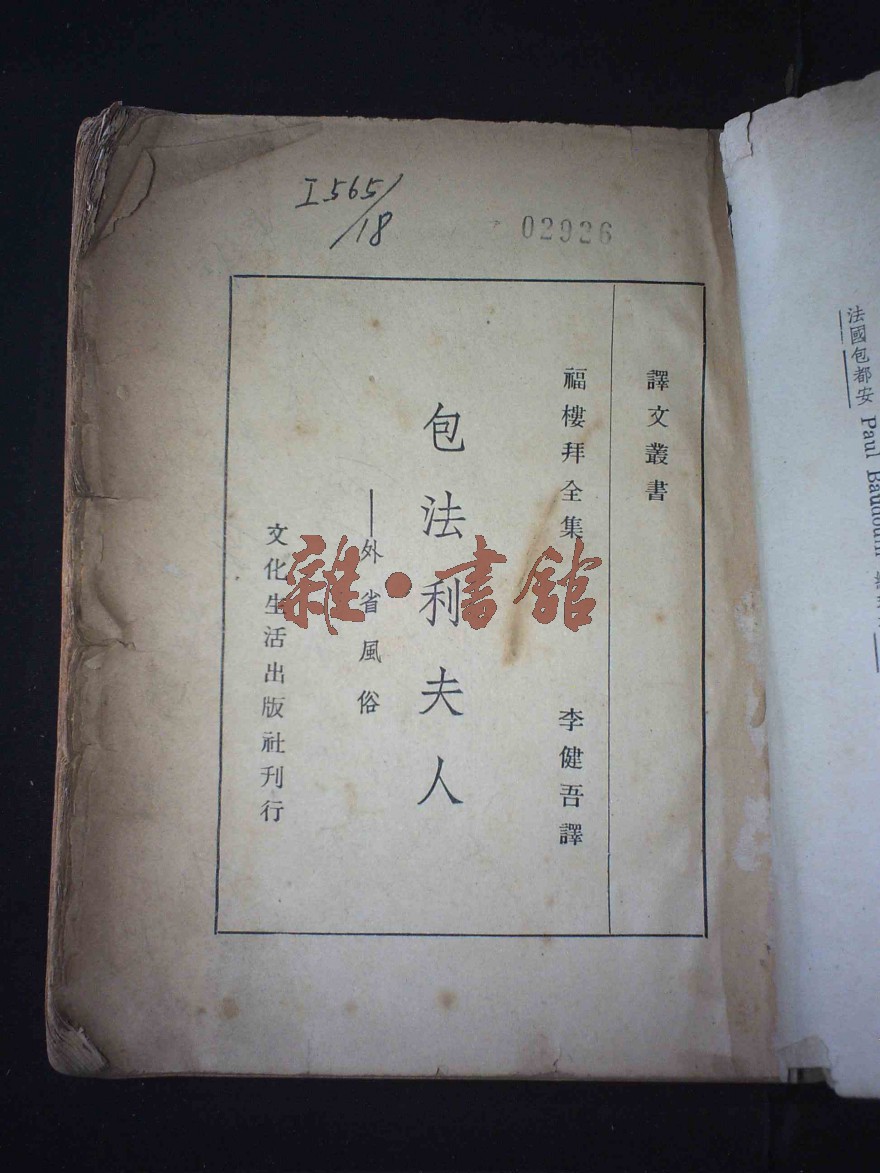 I565/
/18
02926
譯文叢書
福樓拜全集
李健吾譯
包法利夫人
—外省風俗
文化生活出版社刊行
雜·書館
法國包都安 Paul Baudouin